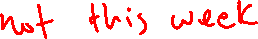 not this week